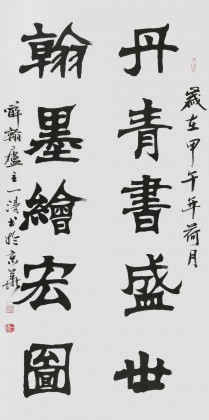 丹青書盛世
歲在甲午年荷月
翰墨繪宏圖
醉翰廬主一濤書於京華